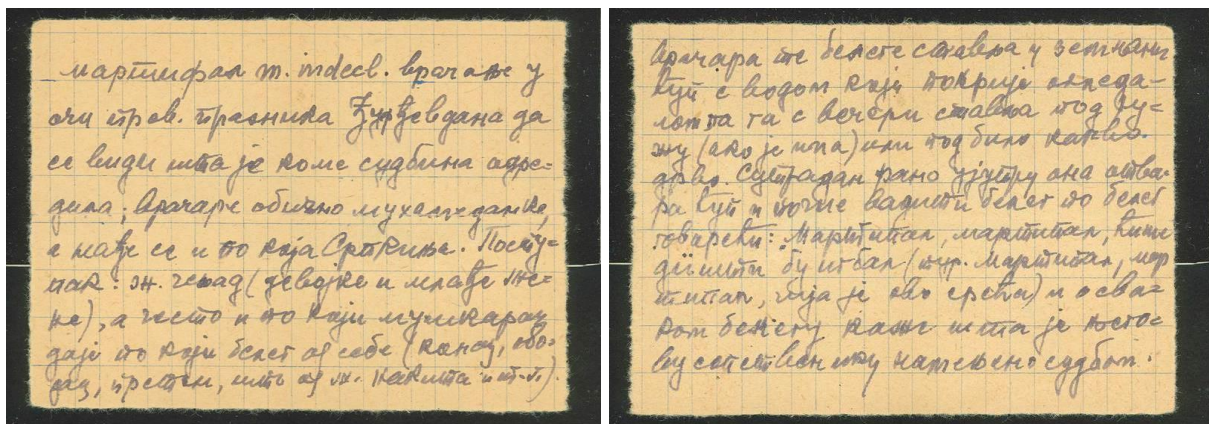 мартифал m. indecl. врачање у
очи прав. празника Ђурђевдана да
се види шта је коме судбина одре-
дила; врачаре обично мухамеданке,
а нађе се и по која Српкиња. Посту-
пак: ж. чељад (девојке и млађе же-
не), а често и по који мушкарац
даје по који белег од себе (конац, обо-
дац, прстен, што од ж. накита и т.д.).
врачара те белеге ставља у земљани
ћуп с водом који покрије огледа-
лом па га с вечери ставља под ру-
жу (ако је има) или под било какво
дрво. Сутрадан рано ујутру она отва-
ра ћуп и почне вадити белег по белег
говорећи: „Мартипал, мартипал,
(тур. Мартипал, мар
типал, чија је ово срећа) и о сва-
ком белегу каже шта је њего-
ву сопственику намењено судбом.